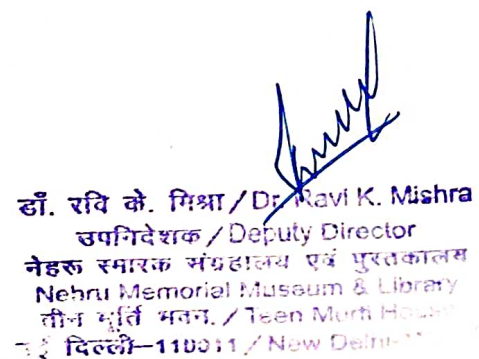 डॉ. रवि के. मिश्रा / Dr. Ravi K. Mishra
उपनिदेशक / Deputy Director
नेहरू स्मारक संग्रहालय एवं पुस्तकालय
Nehru Memorial Museum & Library
तीन मूर्ति भवन. / Teen Murti House
नई दिल्ली-110011 / New Delhi-